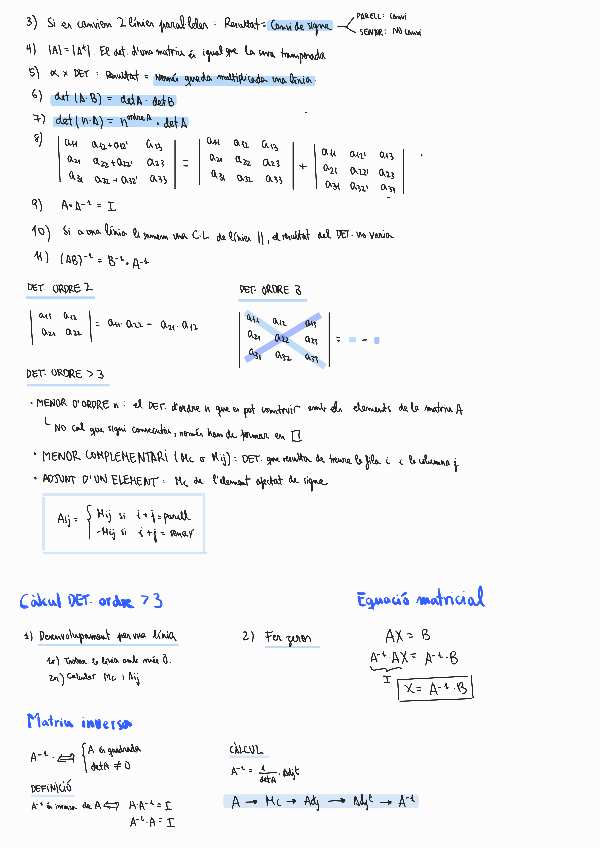 3) Si es canvien 2 línies paral·leles : Resultat = Canvi de signe
PARELL: canvi
SENAR: NO canvi
4) |A| = |Aᵗ|. El det. d'una matriu és igual que la seva transposada
5) α × DET : Resultat = només queda multiplicada una línia
6) det (A·B) = det A · det B
7) det (n·A) = n^ordre A · det A
8) | a11 a12+a12' a13 | = | a11 a12 a13 | + | a11 a12' a13 |
| a21 a22+a22' a23 | | a21 a22 a23 | | a21 a22' a23 |
| a31 a32+a32' a33 | | a31 a32 a33 | | a31 a32' a33 |
9) A·A⁻¹ = I
10) Si a una línia li sumem una C.L. de línies ||, el resultat del DET. no varia
11) (AB)⁻¹ = B⁻¹·A⁻¹
DET. ORDRE 2
| a11 a12 | = a11·a22 - a21·a12
| a21 a22 |
DET. ORDRE 3
| a11 a12 a13 |
| a21 a22 a23 | = -
| a31 a32 a33 |
DET. ORDRE > 3
· MENOR D'ORDRE n : el DET. d'ordre n que es pot construir amb els elements de la matriu A
NO cal que siguin consecutius, només han de formar un □
· MENOR COMPLEMENTARI (Mc o Mij) : DET. que resulta de treure la fila i i la columna j
· ADJUNT D'UN ELEMENT : Mc de l'element afectat de signe
Aij = { Mij si i+j = parell
-Mij si i+j = senar
Càlcul DET. ordre > 3
1) Desenvolupament per una línia
1r) Trobar la línia amb més 0.
2n) Calcular Mc i Aij
2) Fer zeros
Equació matricial
AX = B
A⁻¹·AX = A⁻¹·B
I
X = A⁻¹·B
Matriu inversa
A⁻¹ ⟺ { A és quadrada
det A ≠ 0
DEFINICIÓ
A⁻¹ és inversa de A ⟺ A·A⁻¹ = I
A⁻¹·A = I
CÀLCUL
A⁻¹ = 1/det A · Adjᵗ
A → Mc → Adj → Adjᵗ → A⁻¹